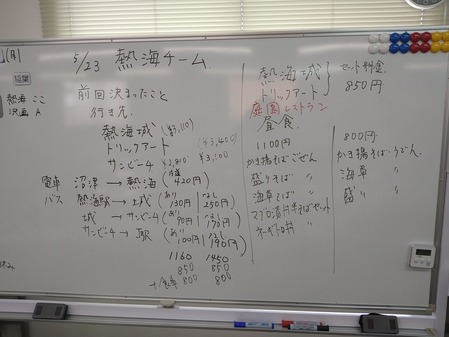 5/23 熱海チーム
前回決まったこと
行き先
熱海城 (¥3,110)
トリックアート (¥3,400)
サンビーチ ¥2,810 ¥3,100
電車 沼津→熱海 (420円)
バス 熱海駅→城 (あり 130円 | なし 250円)
城→サンビーチ (あり 90円 | なし 170円)
サンビーチ→駅 (あり 100円 | なし 190円)
1160 1450
850 850
+食事 800 800
熱海城
トリックアート
セット料金
850円
庭園レストラン
昼食
1100円
かき揚そばごぜん
盛りそば 〃
海草そば 〃
マグロ漬丼半そばセット
ネギトロ丼 〃
800円
かき揚そばうどん
海草 〃
盛り 〃